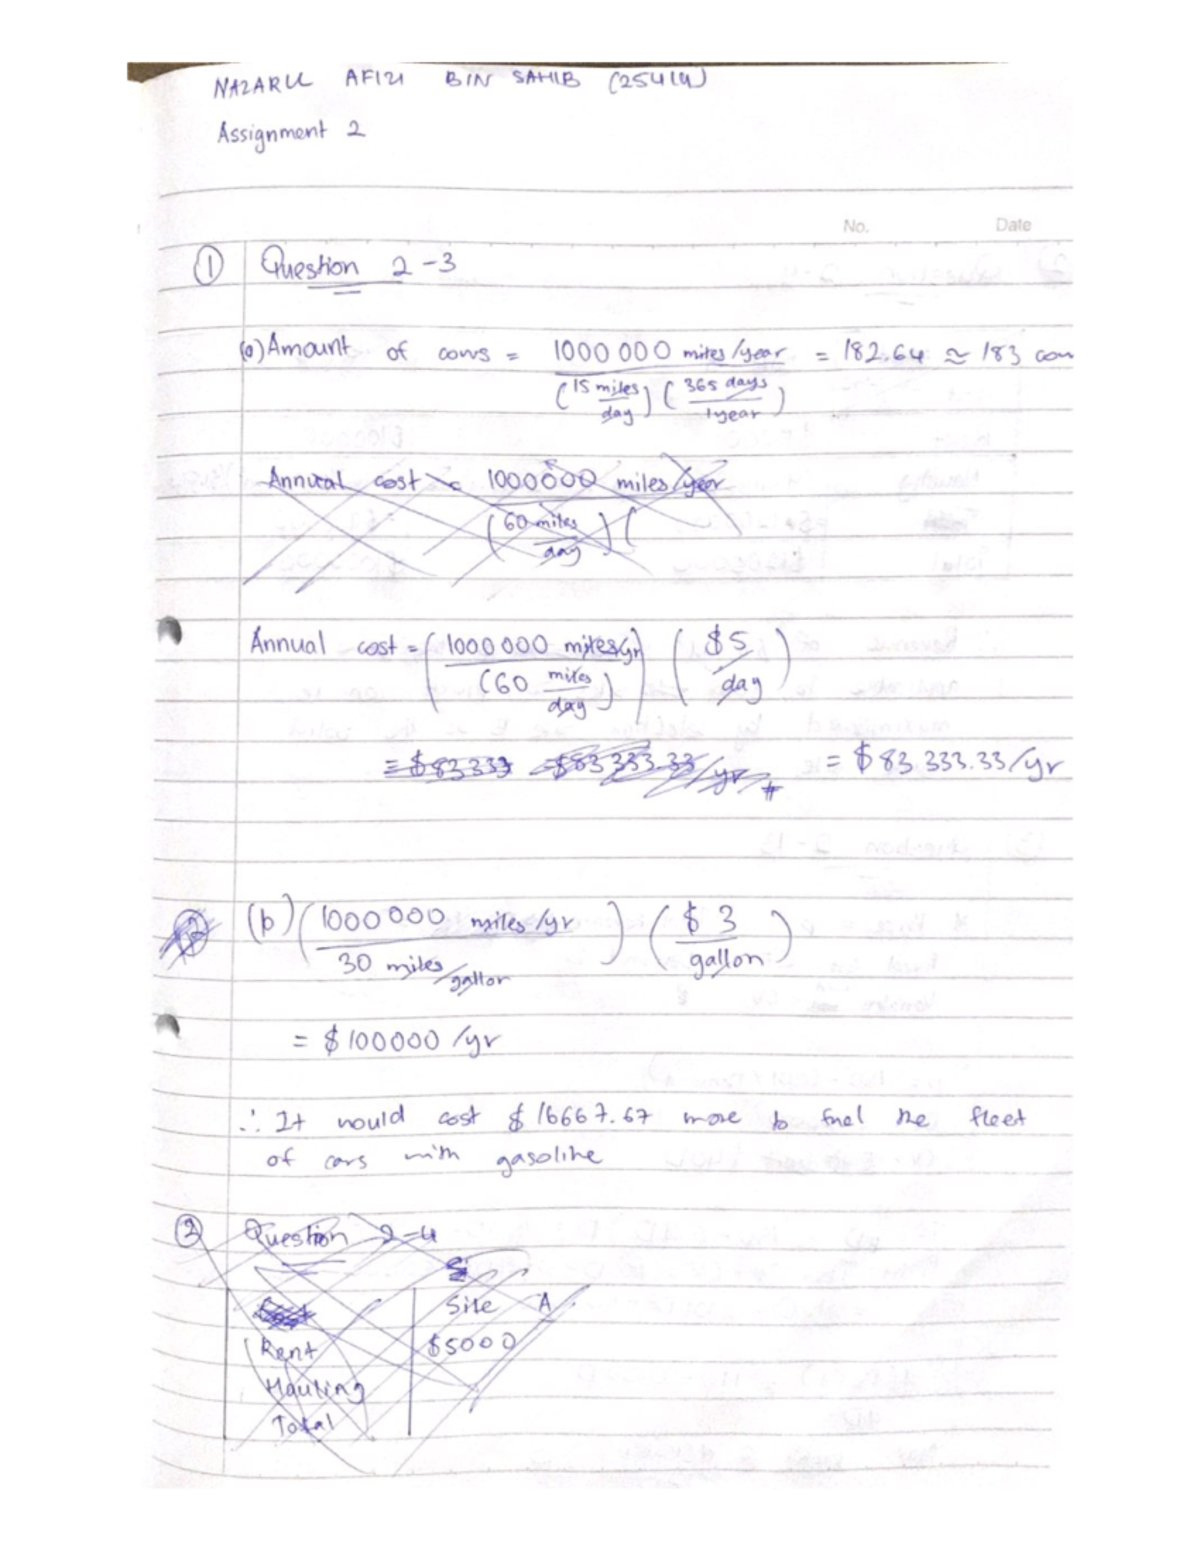 NAZARUL AFIZI BIN SAHIB (25414)
Assignment 2
No. Date
① Question 2-3
(a) Amount of cows = 1000 000 miles/year / (15 miles/day) (365 days/1 year) = 182.64 ≈ 183 cow
Annual cost = 1000000 miles/year
(60 miles/day) (
Annual cost = (1000 000 miles/yr / (60 miles/day)) ($5/day)
= $83 333 = $83 333.33/yr = $83 333.33/yr
(b) (1000 000 miles/yr / 30 miles/gallon) ($3/gallon)
= $100000 /yr
∴ It would cost $16667.67 more to fuel the fleet
of cars with gasoline
② Question 2-4
Site A
Rent $5000
Hauling
Total